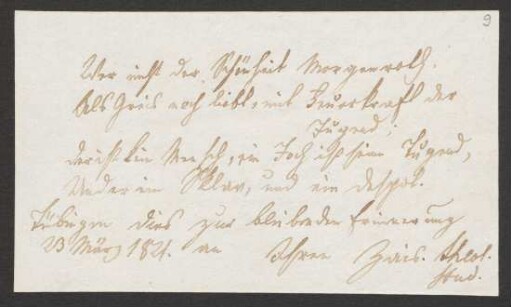 9
Wer nicht der Schönheit Morgenroth.
Als Greis noch liebt, mit Feuerkraft der
Jugend;
der ist kein Mensch, ein Joch ist seine Tugend,
Und er ein Sklav, und ein Despot.
Tübingen dies zur bleibenden Erinnerung
23 März 1821. an Ihren Zais. theol.
Stud.